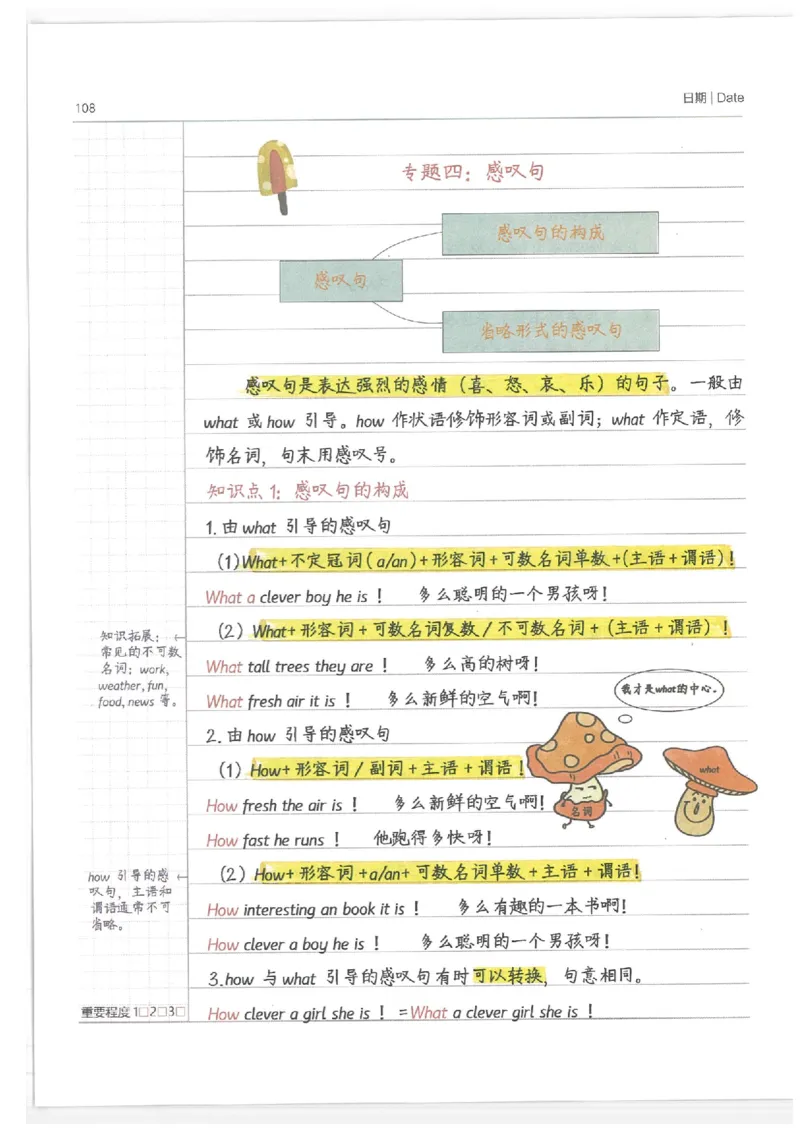 108
日期 | Date
专题四：感叹句
感叹句的构成
感叹句
省略形式的感叹句
感叹句是表达强烈的感情（喜、怒、哀、乐）的句子。一般由
what 或 how 引导。how 作状语修饰形容词或副词；what 作定语，修
饰名词，句末用感叹号。
知识点 1：感叹句的构成
1.由 what 引导的感叹句
(1)What+不定冠词(a/an)+形容词+可数名词单数+(主语+谓语)！
What a clever boy he is！ 多么聪明的一个男孩呀！
知识拓展：
常见的不可数
名词：work,
weather, fun,
food, news 等。
(2) What+形容词+可数名词复数/不可数名词+(主语+谓语)！
What tall trees they are！ 多么高的树呀！
What fresh air it is！ 多么新鲜的空气啊！
我才是what的中心。
2.由 how 引导的感叹句
(1) How+形容词/副词+主语+谓语！
what
How fresh the air is！ 多么新鲜的空气啊！
名词
How fast he runs！ 他跑得多快呀！
how 引导的感
叹句，主语和
谓语通常不可
省略。
(2) How+形容词+a/an+可数名词单数+主语+谓语！
How interesting an book it is！ 多么有趣的一本书啊！
How clever a boy he is！ 多么聪明的一个男孩呀！
3.how 与 what 引导的感叹句有时可以转换，句意相同。
重要程度 1□2□3□
How clever a girl she is！=What a clever girl she is！